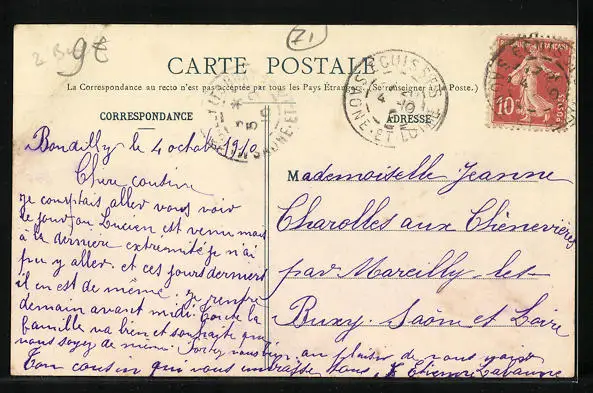 2 B
9€
71
CARTE POSTALE
La Correspondance au recto n'est pas acceptée par tous les Pays Étrangers. (Se renseigner à la Poste.)
CORRESPONDANCE
ADRESSE
SAÔNE-ET-LOIRE
10
POSTES
Bondilly le 4 octobre 1910
Chère cousine
je comptais aller vous voir
le jour où Lucien est venu mais
à la dernière extremité je n'ai
pu y aller et ces jours derniers
il en est de même. je rentre
demain avant midi. Toute la
famille va bien et souhaite que
vous soyez de même. Portez vous bien, au plaisir de vous voir
Ton cousin qui vous embrasse tous,
Mademoiselle Jeanne
Charolles aux Chènevières
par Marcilly-les-
Buxy. Saône et Loire